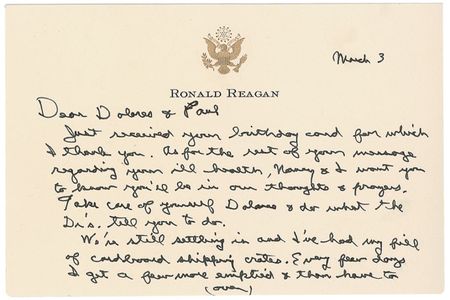 March 3
RONALD REAGAN
Dear Dolores & Paul
Just received your birthday card for which
I thank you. As for the rest of your message
regarding your ill health, Nancy & I want you
to know you'll be in our thoughts & prayers.
Take care of yourself Dolores & do what the
Dr's. tell you to do.
We're still settling in and I've had my fill
of cardboard shipping crates. Every few days
I get a few more emptied & then have to
(over)